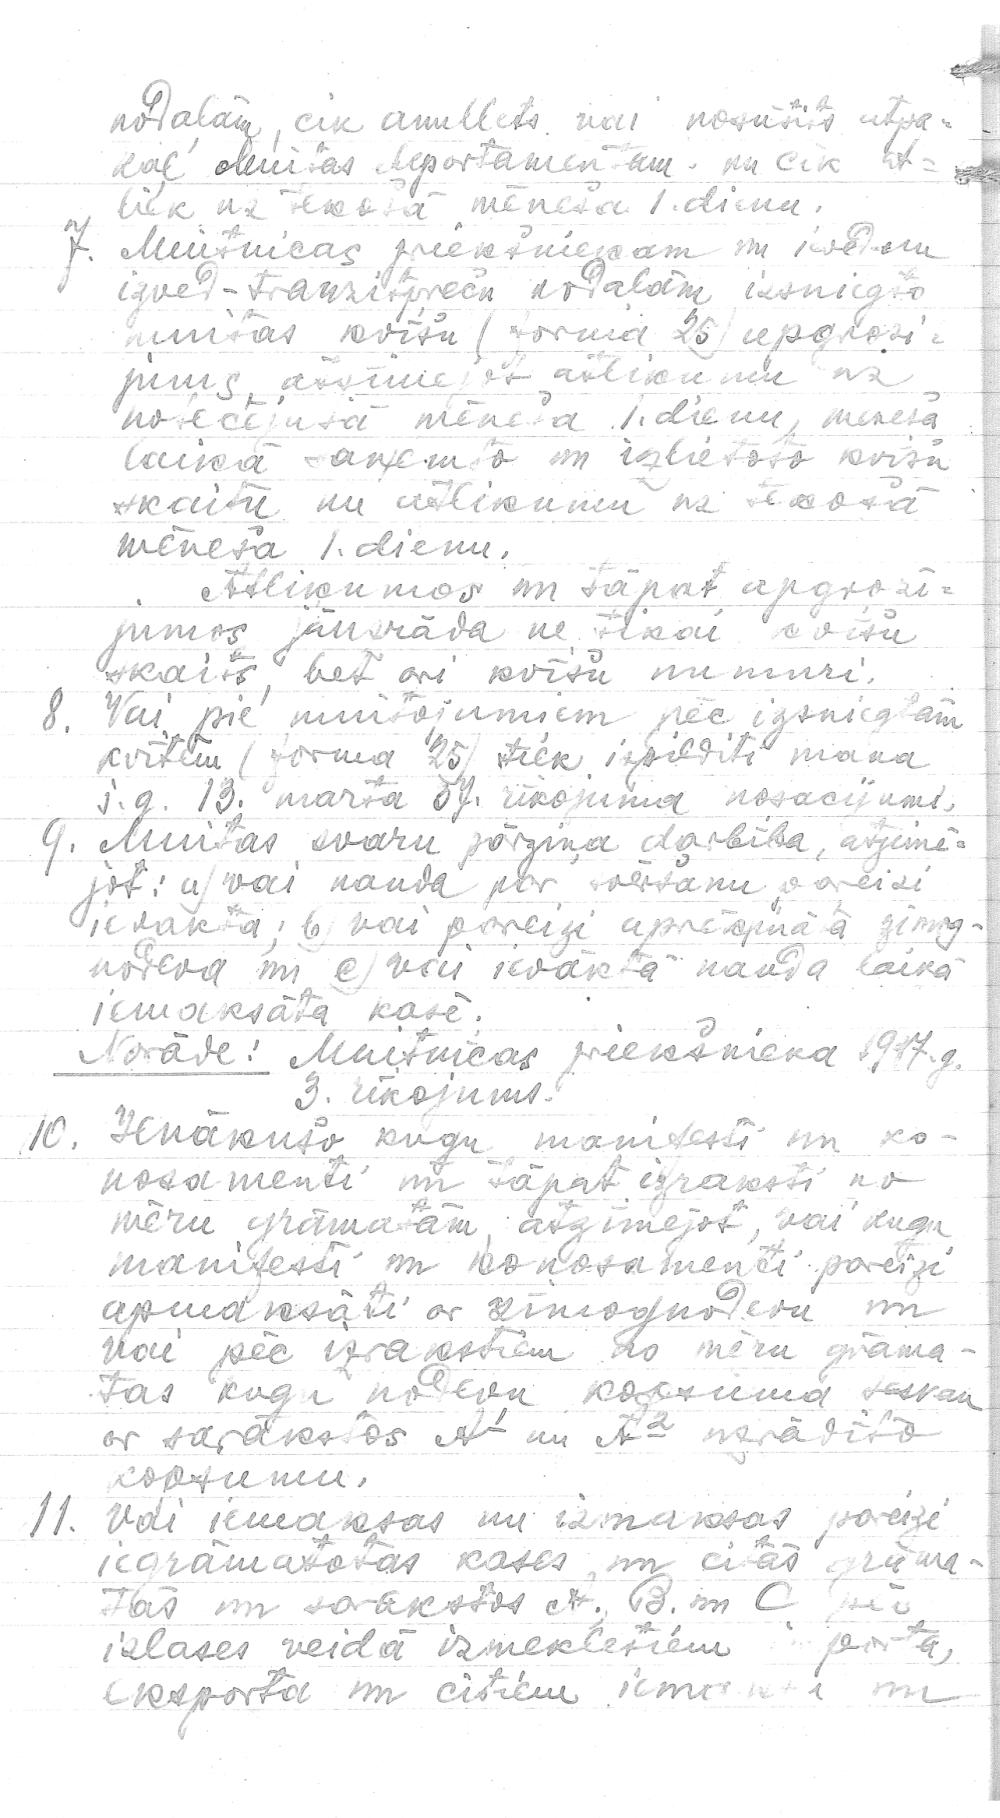 nodaļām, cik anullēts vai nosūtīts atpa-
kaļ Muitas departamentam un cik at-
liek uz tekošā mēneša 1. dienu.
7. Muitnīcas priekšniekam un ievedem
izved-tranzitpreču nodaļām izsniegto
muitas kvīšu (forma 25) apgrozī-
jums, atzīmējot atlikumu uz
notecējušā mēneša 1. dienu, mēneša
laikā saņemto un izlietoto kvīšu
skaitu un atlikumu uz tekošā
mēneša 1. dienu.
Atlikumos un tāpat apgrozī-
jumos jāuzrāda ne tikai kvīšu
skaits, bet arī kvīšu numuri.
8. Vai pie muitojumiem pēc izsniegtām
kvītēm (forma 25) tiek izpildīti mana
š.g. 13. marta 57. rīkojuma nosacījumi.
9. Muitas svaru pārziņa darbība, atzīmē-
jot: a) vai nauda par svēršanu pareizi
ievākta; b) vai pareizi aprēķināta zīmog-
nodeva un c) vai ievāktā nauda laikā
iemaksāta kasē.
Norāde: Muitnīcas priekšnieka 1937.g.
3. rīkojums.
10. Ienākušo kuģu manifesti un ko-
nosamenti un tāpat izraksti no
mēru grāmatām, atzīmējot, vai kuģu
manifesti un konosamenti pareizi
apmaksāti ar zīmognodevu un
vai pēc izrakstiem no mēru grāma-
tas kuģu nodevu kopsuma saskan
ar sarakstos A1 un A2 uzrādīto
kopsumu.
11. Vai iemaksas un izmaksas pareizi
iegrāmatotas kases un citās grāma-
tās un sarakstos A., B. un C pēc
izlases veidā izmeklētiem porta,
eksporta un citiem iemaksu un